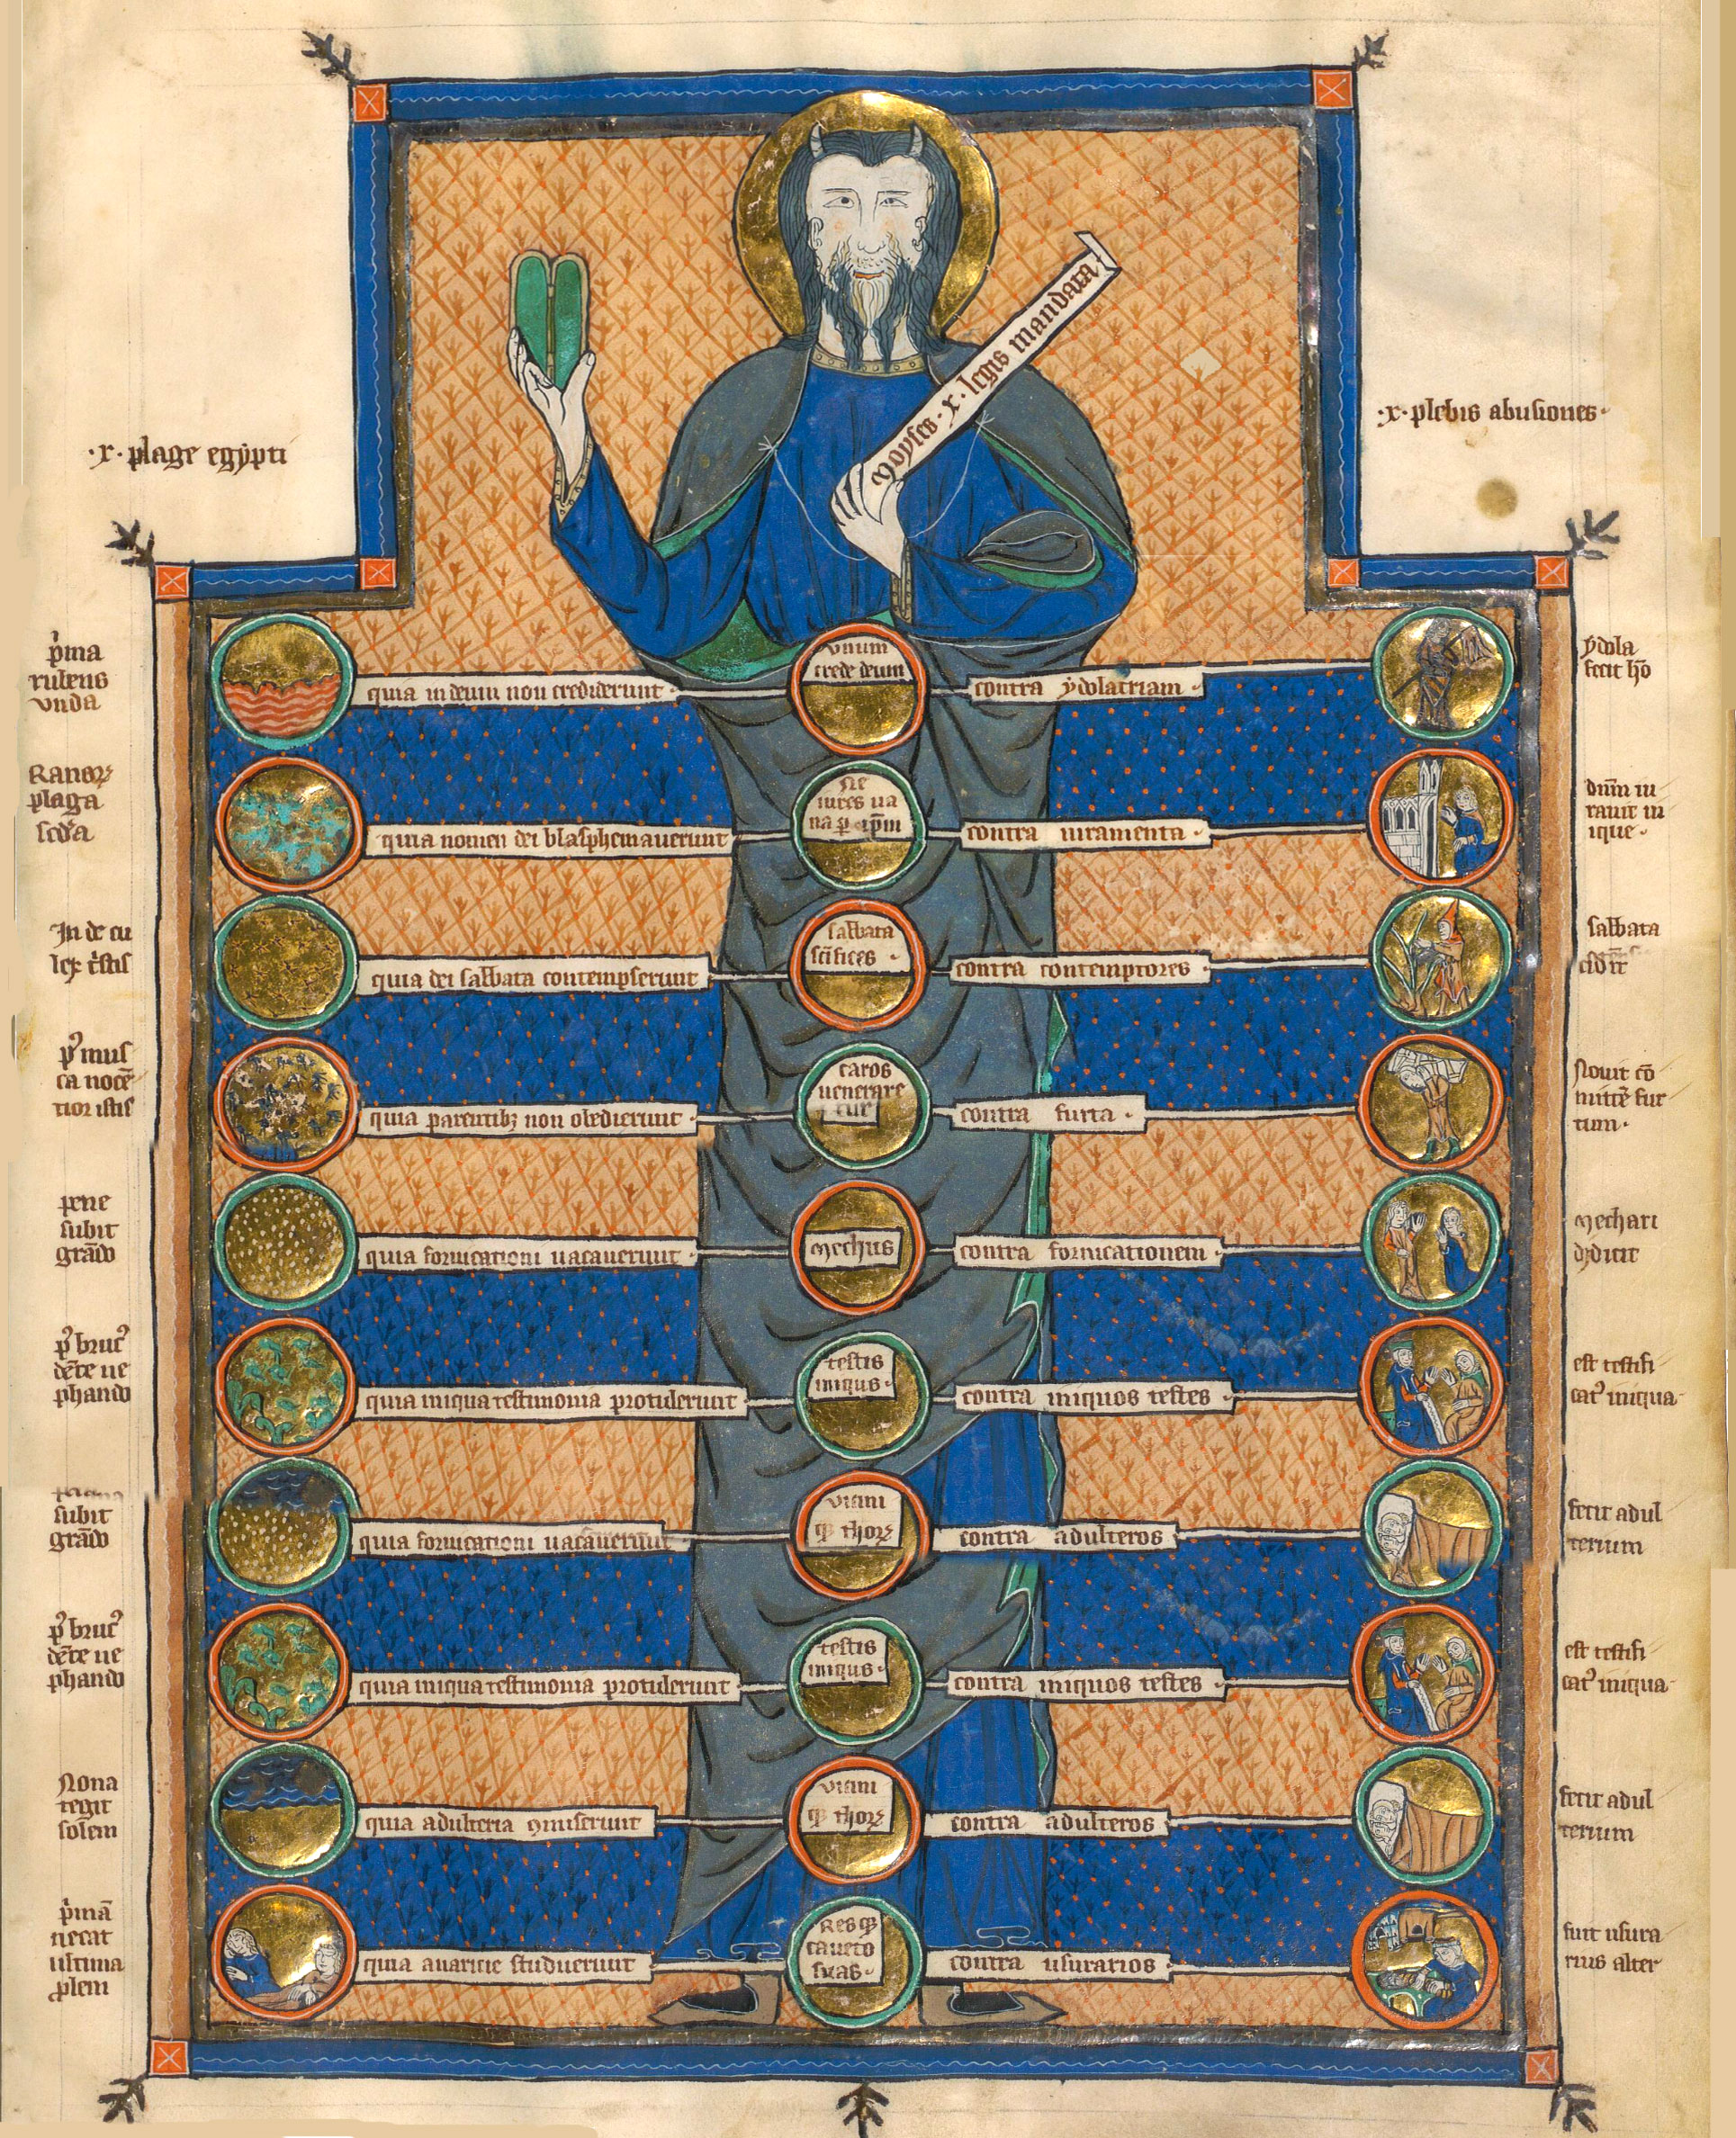 moyses · x · legis mandata
·x· plebis abusiones·
·x· plage egypti
p̾ma
rubens
vnda
quia in deum non crediderunt ·
vnum
crede deum
contra ydolatriam ·
ydola
fecit h̄o
Ranoꝝ
plaga
scd̾a
quia nomen dei blasphemauerunt
Ne
iures ua
na ꝑ ip̄m
contra iuramenta ·
dn̄m iu
rauit in
ique ·
In de cu
lex t̾stis
quia dei sabbata contempserunt
sabbata
sc̄ifices ·
contra contemptores ·
sabbata
p̾ mus
ca nocē
tior istis
quia parentibꝫ non obedierunt ·
caros
uenerare
contra furta ·
Nouit cō
mittē fur
tum ·
pene
subit
grādo
quia fornicationi uacauerunt ·
mechus
contra fornicationem ·
mechari
didicit
p̾ bruc̾
dēte ne
phando
quia iniqua testimonia protulerunt ·
testis
iniqus ·
contra iniquos testes ·
est testifi
cat̾ iniqua ·
subit
grādo
quia fornicationi uacauerunt
vxiui
qꝫ thoꝝ
contra adulteros ·
fecit adul
terium
p̾ bruc̾
dēte ne
phando
quia iniqua testimonia protulerunt ·
testis
iniqus ·
contra iniquos testes ·
est testifi
cat̾ iniqua ·
Nona
tegit
solem
quia adulteria ꝯmiserunt ·
qꝫ thoꝝ
contra adulteros ·
fecit adul
terium
p̾mā
necat
ultima
plem
quia auaricie studuerunt ·
Res qꝫ
caueto
suas ·
contra usurarios ·
fuit usura
rius alter